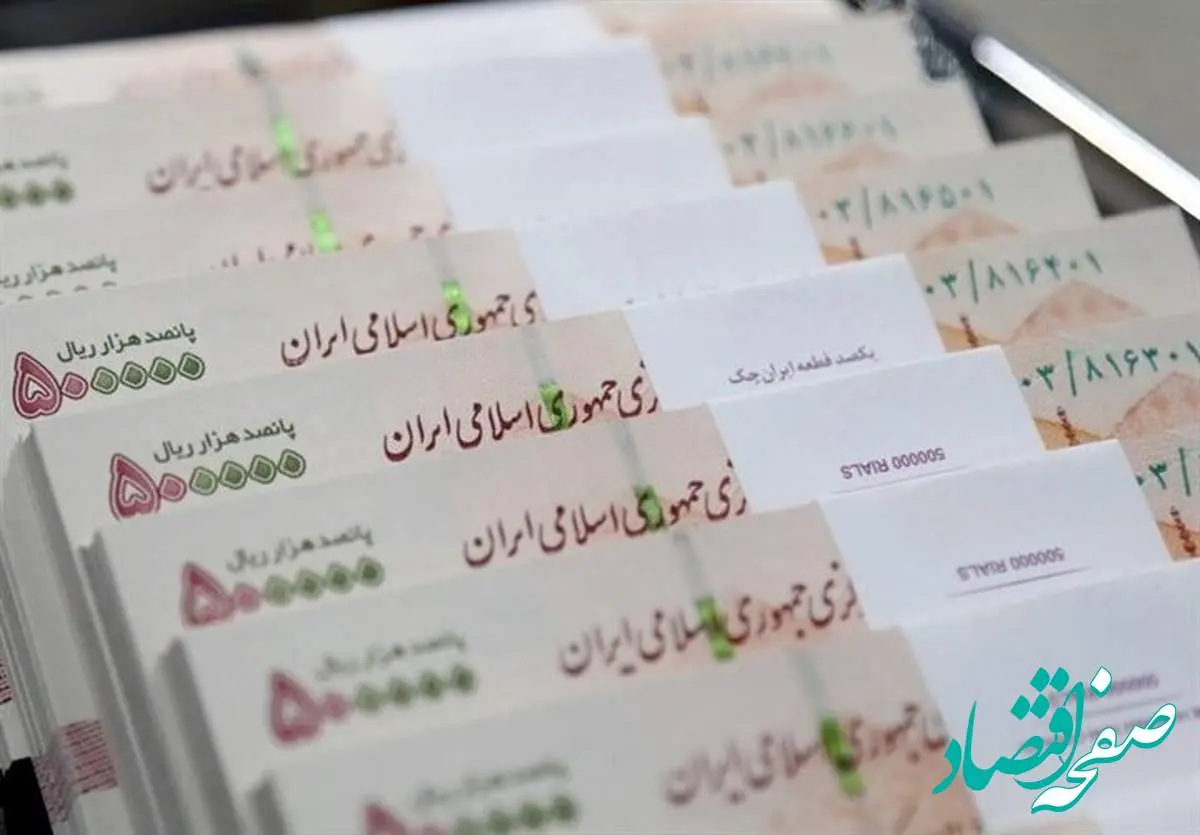 ۰۳/۸۱۶۶۰۱
جمهوری اسلامی ایران
۰۳/۸۱۶۵۰۱
پانصد هزار ریال
۰۳/۸۱۶۴۰۱
پانصد هزار ریال
۵۰۰۰۰۰
زی جمهوری اسلامی ایران
یکصد قطعه ایران چک
۰۳/۸۱۶۳۰۱
پانصد هزار ریال
۵۰۰۰۰۰
زی جمهوری اسلامی ایران
500000 RIALS
۰۳/
پانصد هزار ریال
۵۰۰۰۰۰
زی جمهوری اسلامی ایران
500000 RIALS
پانصد هزار ریال
۵۰۰۰۰۰
زی جمهوری اسلامی ایران
پانصد هزار ریال
۵۰۰۰۰۰
جمهوری اسلامی ایران
صفحه اقتصاد